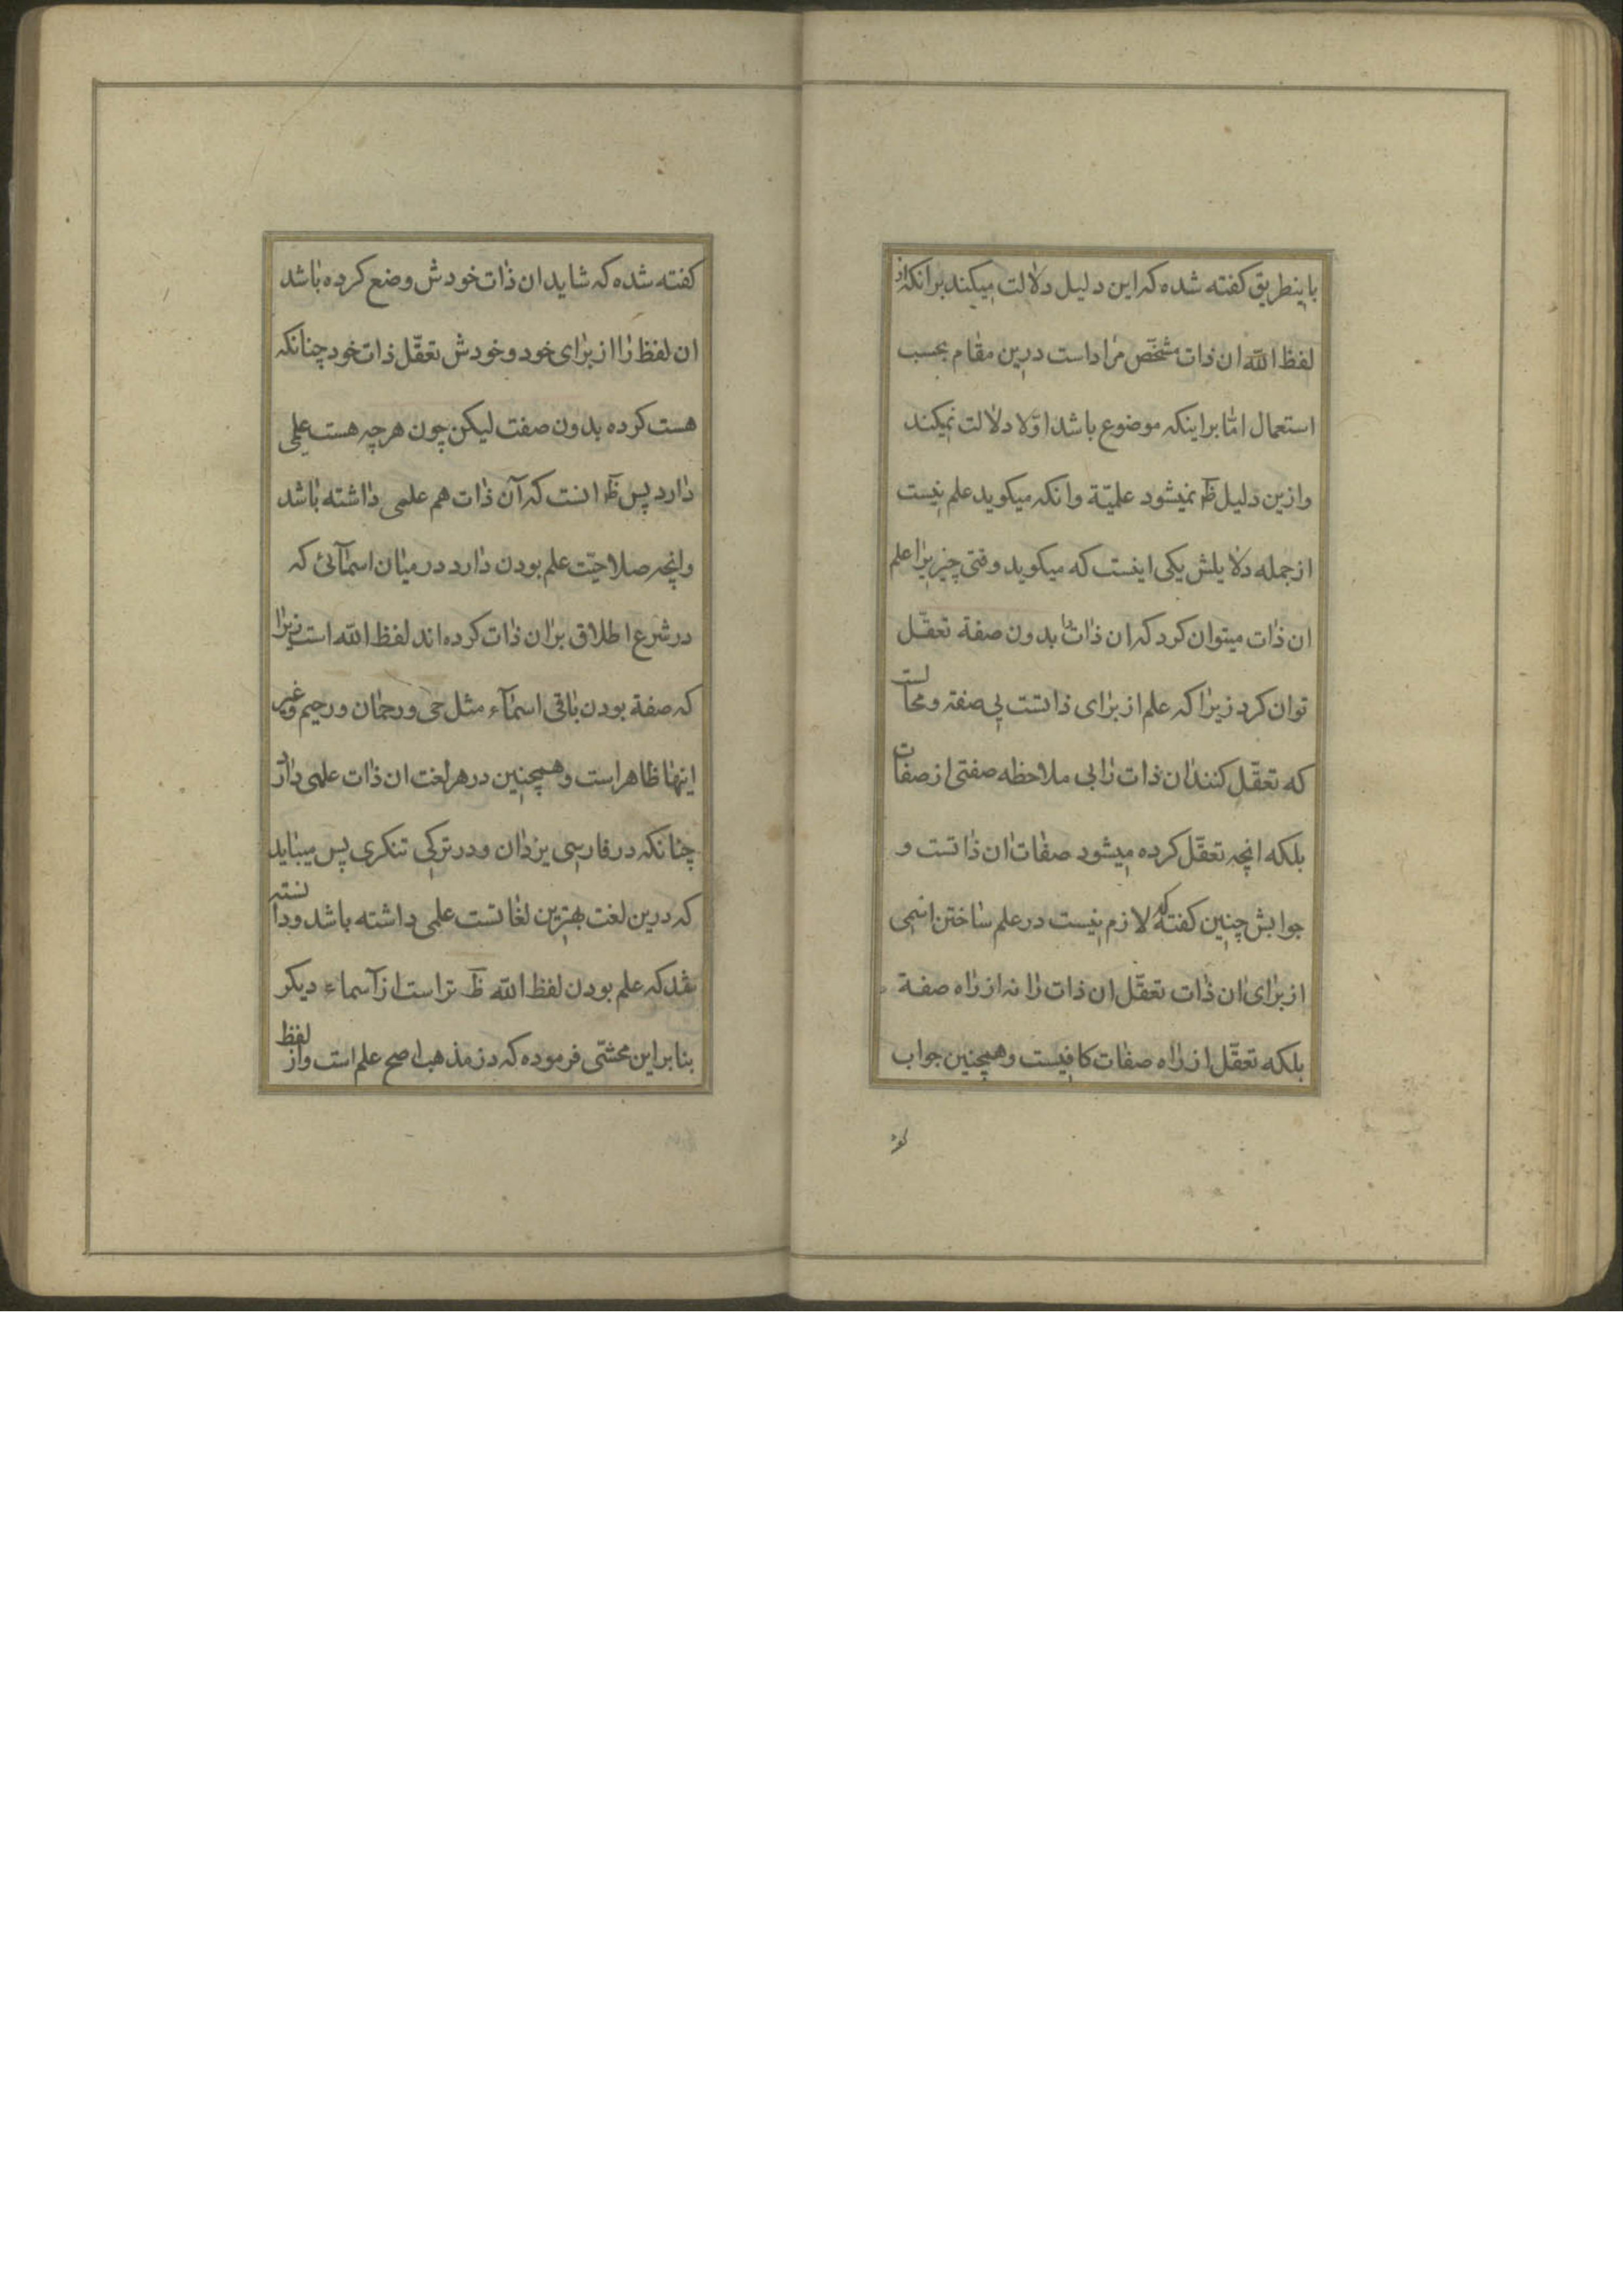 باینطریق کفته شده که این دلیل دلالت میکند برانکه از
لفظ الله ان ذات مشخّص مراد است درین مقام بحسب
استعمال امّا براینکه موضوع باشد اوّلا دلالت نمیکند
وازین دلیل ظَر نمیشود علمیّة وانکه میکوید علم نیست
ازجمله دلایلش یکی اینست که میکوید وقتی چیزیرا علم
ان ذات میتوان کرد که ان ذات را بدون صفة تعقّل
توان کرد زیرا که علم از برای ذاتست بی صفته ومحالست
که تعقّل کنند ان ذات را بی ملاحظه صفتی از صفات
بلکه انچه تعقّل کرده میشود صفات ان ذاتست و
جوابش چنین کفته که لازم نیست در علم ساختن اسمی
از برای ان ذات تعقّل ان ذات را نه از راه صفة
بلکه تعقّل از راه صفات کافیست وهمچنین جواب
کفته شده که شاید ان ذات خودش وضع کرده باشد
ان لفظ را از برای خود وخودش تعقّل ذات خود چنانکه
هست کرده بدون صفت لیکن چون هرچه هست علمی
دارد پس ظَر انست که آن ذات هم علمی داشته باشد
وانچه صلاحیّت علم بودن دارد درمیان اسمآئی که
در شرع اطلاق بران ذات کرده اند لفظ الله است زیرا
که صفة بودن باقی اسمآء مثل حی ورحمان ورحیم وغیر
اینها ظاهر است وهمچنین در هر لغت ان ذات علمی دارد
چنانکه در فارسی یزدان ودر ترکی تنکری پس میباید
که درین لغت بهترین لغاتست علمی داشته باشد ودانسته
شد که علم بودن لفظ الله ظَ تر است از آسماء دیکر
بنابراین محشّی فرموده که در مذهب اصح علم است واز لفظ